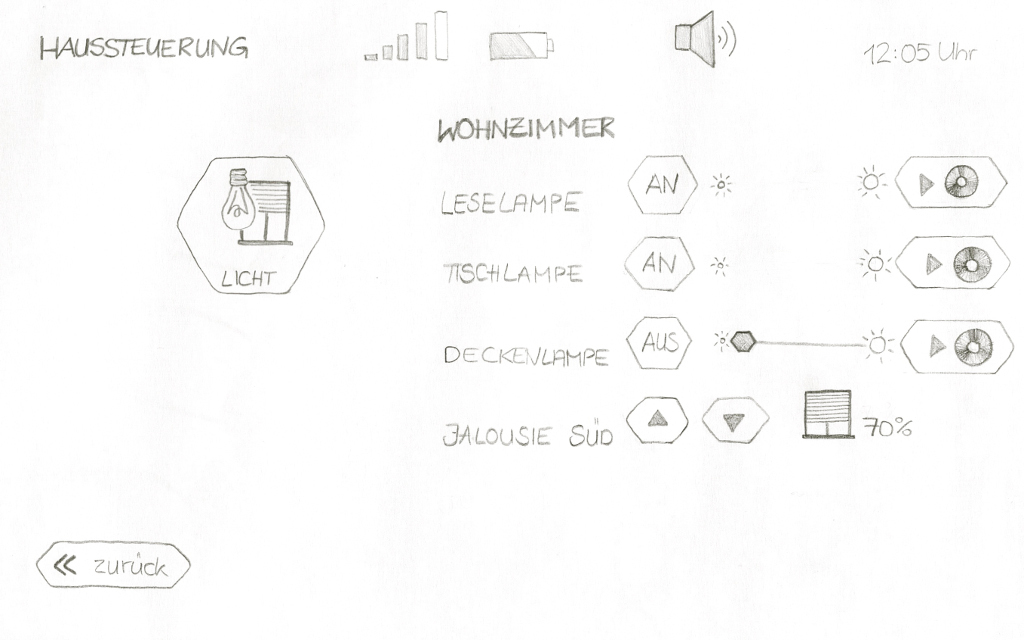 HAUSSTEUERUNG 12:05 Uhr
WOHNZIMMER
LESELAMPE AN
LICHT
TISCHLAMPE AN
DECKENLAMPE AUS
JALOUSIE SÜD 70%
« zurück